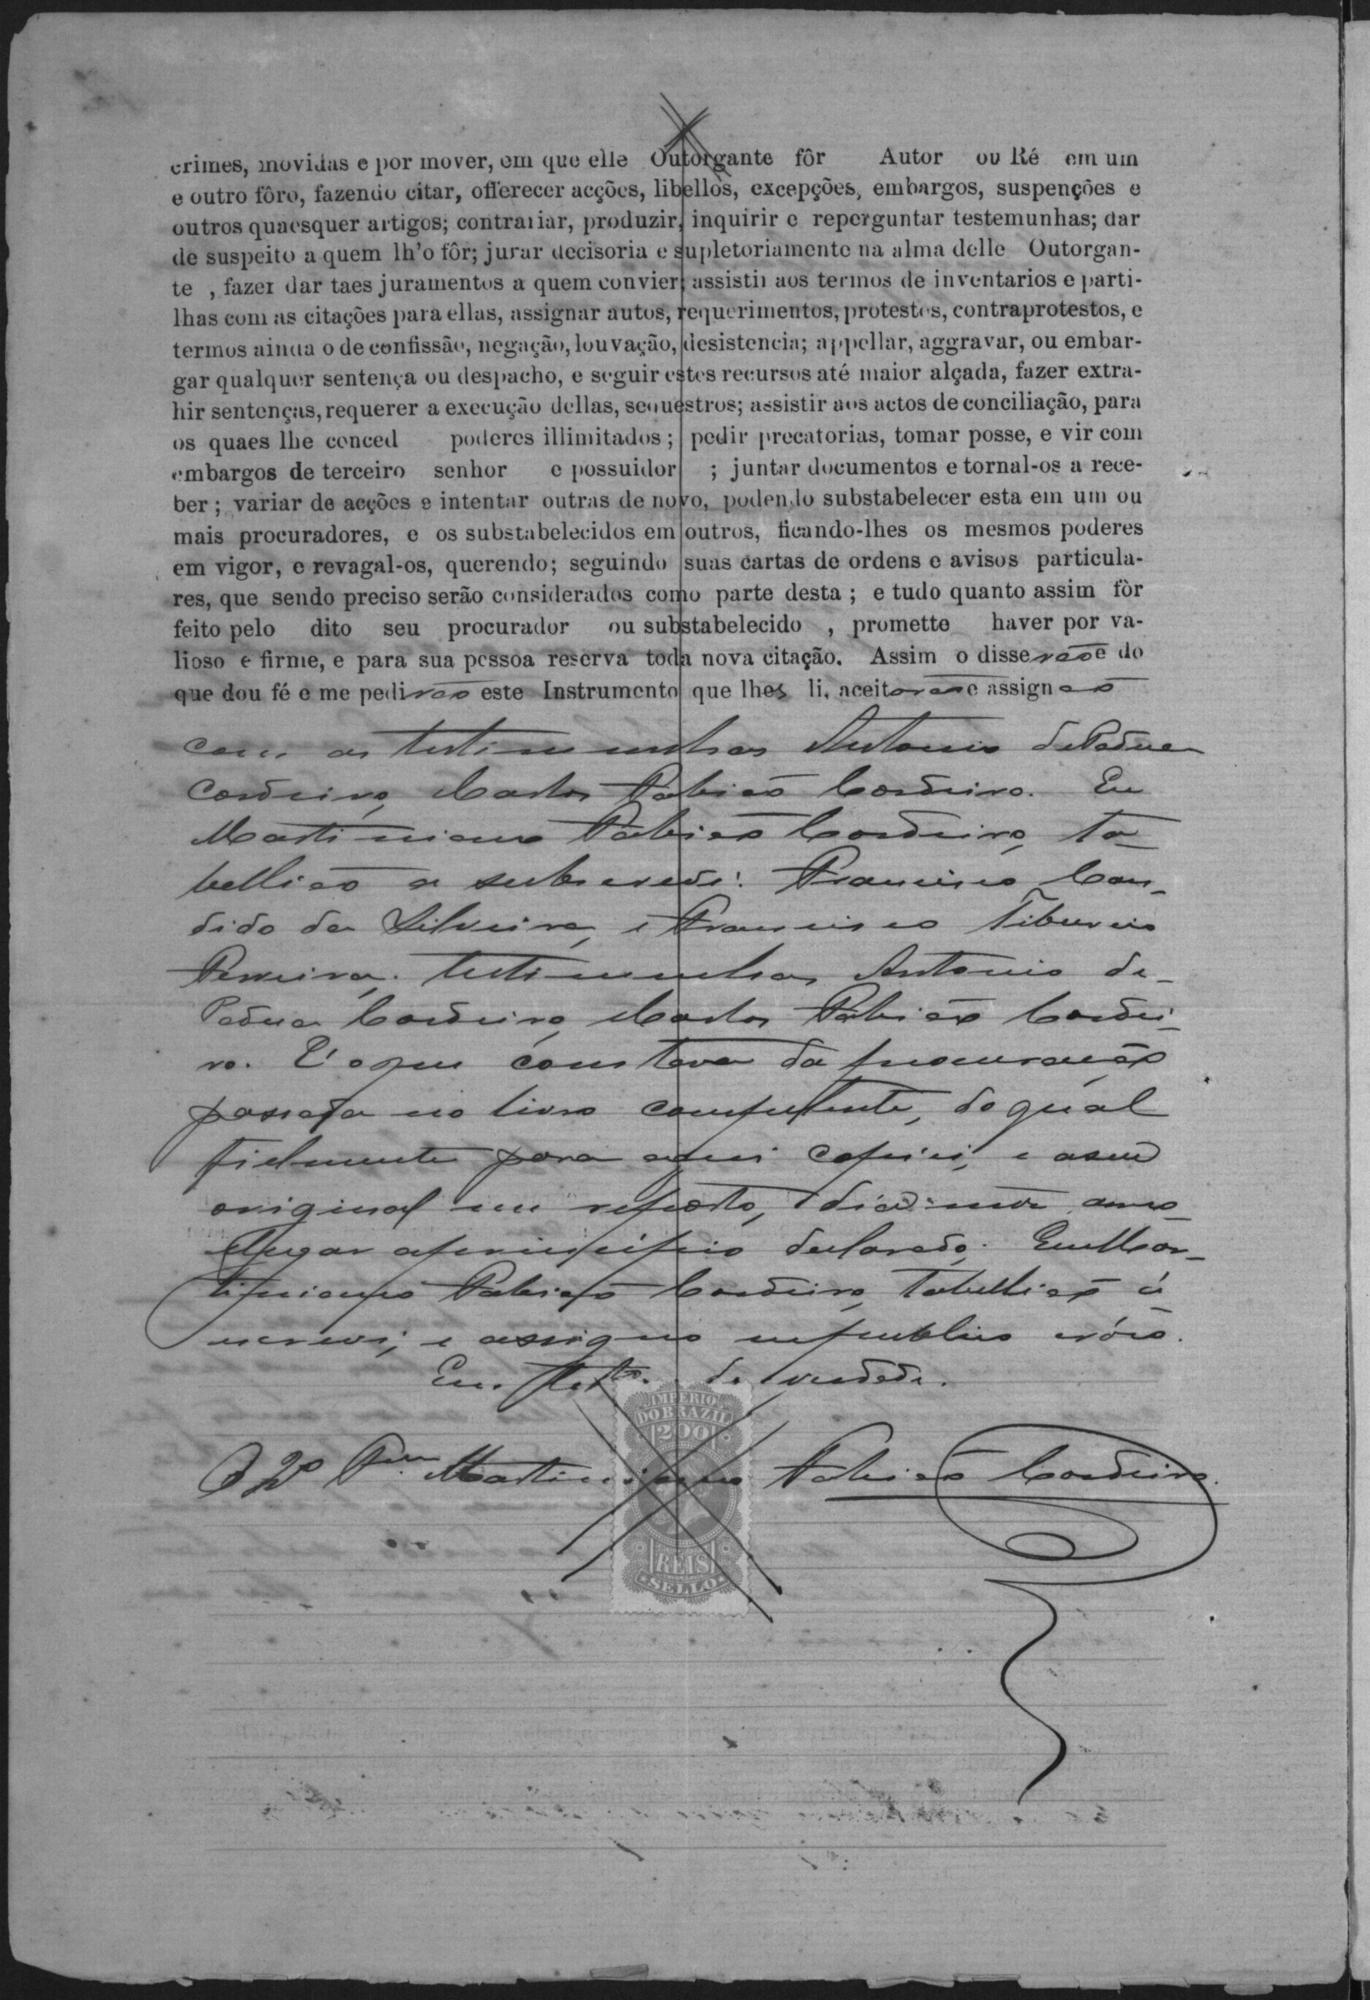 crimes, movidas e por mover, em que elle Outorgante fôr Autor ou Ré em um
e outro fôro, fazendo citar, offerecer acções, libellos, excepções, embargos, suspenções e
outros quaesquer artigos; contrariar, produzir, inquirir e reperguntar testemunhas; dar
de suspeito a quem lh'o fôr; jurar decisoria e supletoriamente na alma delle Outorgan-
te , fazer dar taes juramentos a quem convier; assistir aos termos de inventarios e parti-
lhas com as citações para ellas, assignar autos, requerimentos, protestos, contraprotestos, e
termos ainda o de confissão, negação, louvação, desistencia; appellar, aggravar, ou embar-
gar qualquer sentença ou despacho, e seguir estes recursos até maior alçada, fazer extra-
hir sentenças, requerer a execução dellas, sequestros; assistir aos actos de conciliação, para
os quaes lhe conced poderes illimitados; pedir precatorias, tomar posse, e vir com
embargos de terceiro senhor e possuidor ; juntar documentos e tornal-os a rece-
ber; variar de acções e intentar outras de novo, podendo substabelecer esta em um ou
mais procuradores, e os substabelecidos em outros, ficando-lhes os mesmos poderes
em vigor, e revagal-os, querendo; seguindo suas cartas de ordens e avisos particula-
res, que sendo preciso serão considerados como parte desta; e tudo quanto assim fôr
feito pelo dito seu procurador ou substabelecido , promette haver por va-
lioso e firme, e para sua pessoa reserva toda nova citação. Assim o disserão e do
que dou fé e me pedirão este Instrumento que lhes li, aceitarão e assignão
com as testimunhas Antonio de Padua
Cordeiro, Carlos Fabião Cordeiro. Eu
Martiniano Fabião Cordeiro, ta-
bellião a subscrevi: Francisco Can-
dido da Silveira, e Francisco Tiburcio
Pereira. Testimunhas Antonio de
Padua Cordeiro, Carlos Fabião Cordei-
ro. E' o que constava da procuração
passada no livro competente, do qual
fielmente para aqui copiei, e a seu
original me reporto, dia mez anno
lugar a principio declarado. Eu Mar-
tiniano Fabião Cordeiro, Tabellião o
escrevi, e assigno em publico e razo.
Em test.º de verdade.
IMPERIO
DO BRAZIL
200
O 2º Martiniano Fabião Cordeiro.
REIS
SELLO